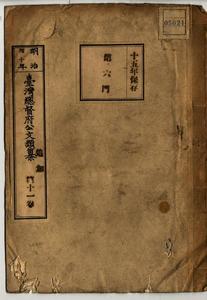 05021
十五年保存
第六門
明治
四十年
臺灣總督府公文類纂
追加
第十一卷